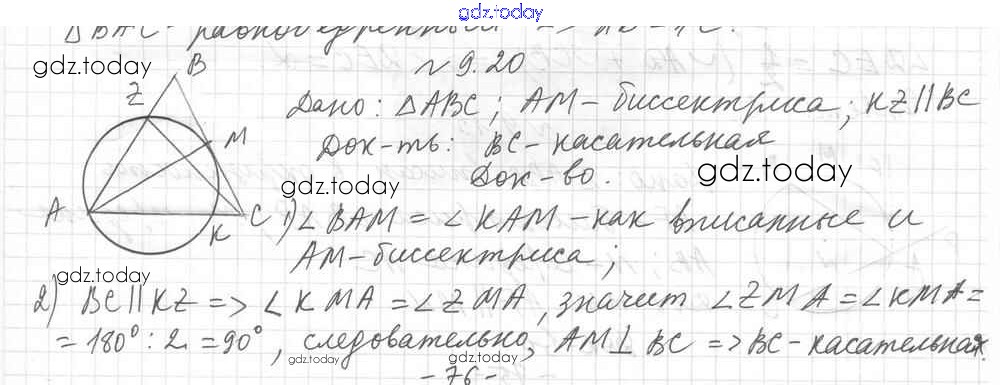 gdz.today
△ВАС - равнобедренный =>
gdz.today
N 9.20
B
Z
Дано: △ABC; AM-биссектриса; KZ||BC
M
Док-ть: BC-касательная
gdz.today
gdz.today
Док-во.
A
C
K
1) ∠BAM = ∠KAM - как вписанные и
AM-биссектриса;
gdz.today
2) BC||KZ => ∠KMA = ∠ZMA, значит ∠ZMA = ∠KMA =
= 180° : 2 = 90°, следовательно, AM⊥BC => BC-касательная.
gdz.today
gdz.today
- 76 -